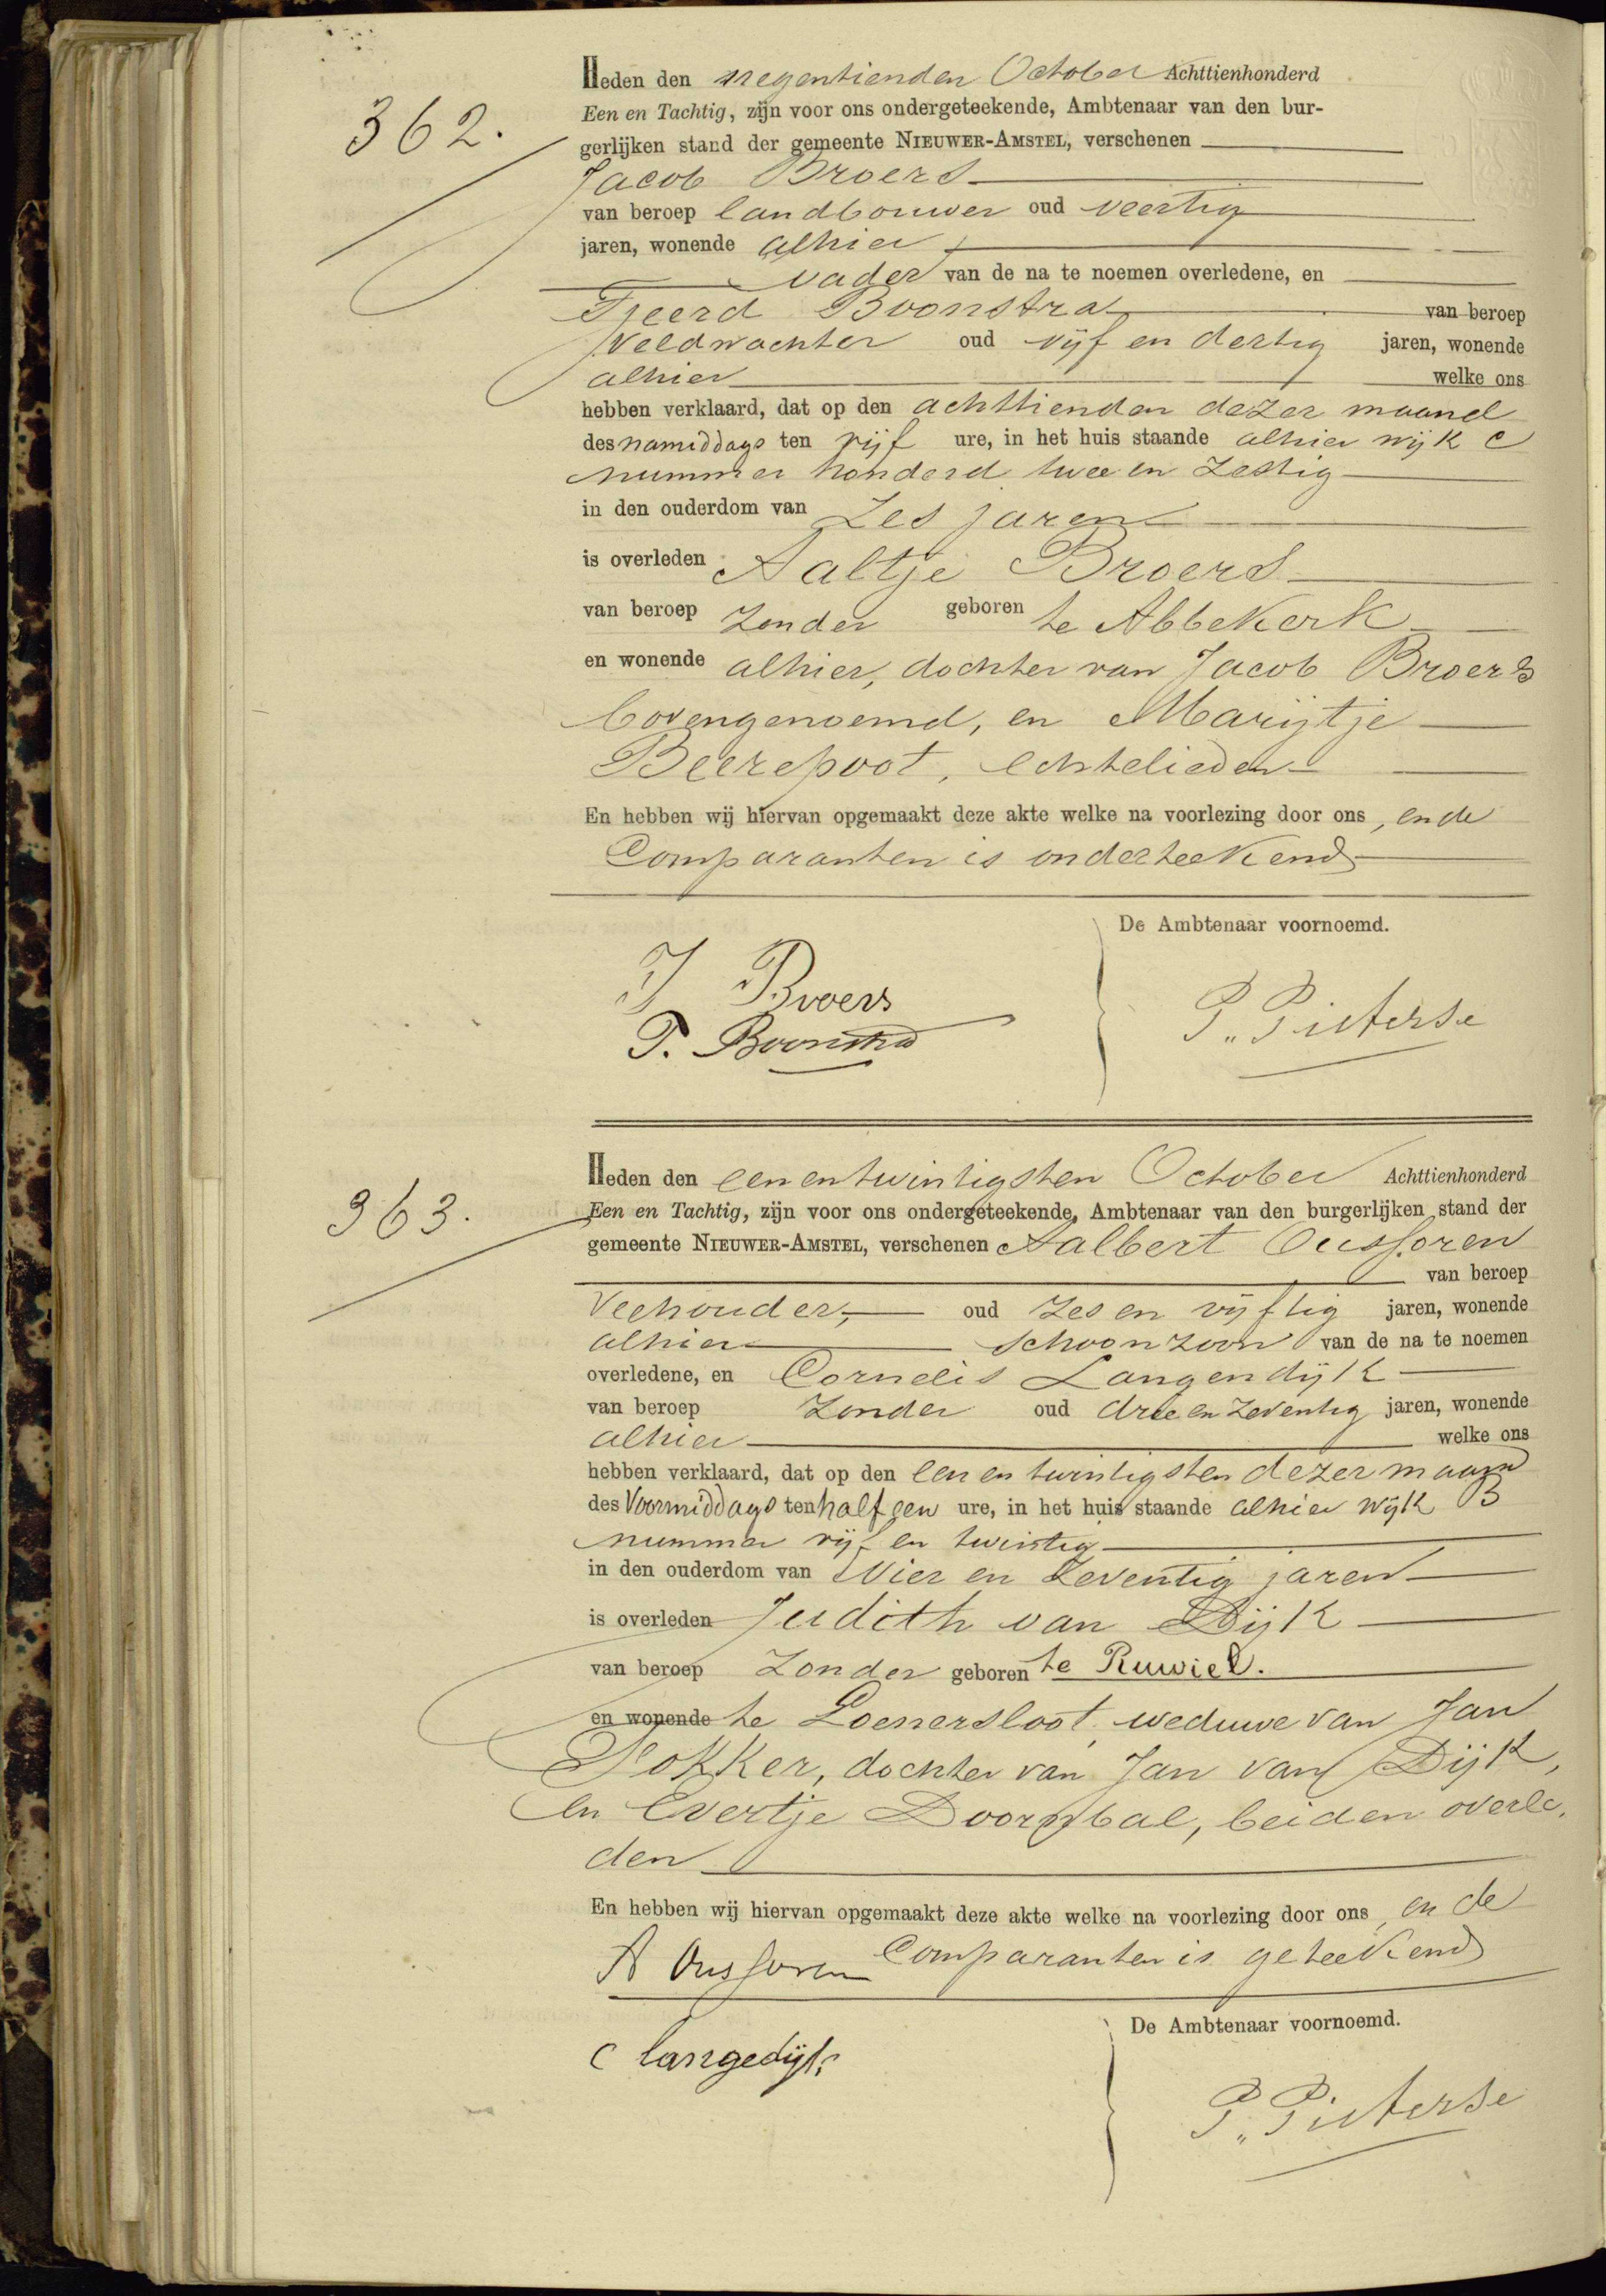 362.
Heden den negentienden October Achttienhonderd
Een en Tachtig, zijn voor ons ondergeteekende, Ambtenaar van den bur-
gerlijken stand der gemeente NIEUWER-AMSTEL, verschenen
Jacob Broers
van beroep landbouwer oud veertig
jaren, wonende alhier,
vader van de na te noemen overledene, en
Tjeerd Boonstra van beroep
Veldwachter oud vijf en dertig jaren, wonende
alhier welke ons
hebben verklaard, dat op den achttienden dezer maand
des namiddags ten vijf ure, in het huis staande alhier wijk C
nummer honderd twee en zestig
in den ouderdom van Zes jaren
is overleden Aaltje Broers
van beroep Zonder geboren te Abbekerk
en wonende alhier, dochter van Jacob Broers
bovengenoemd, en Marijtje
Beerepoot, echtelieden
En hebben wij hiervan opgemaakt deze akte welke na voorlezing door ons, en de
Comparanten is onderteekend
De Ambtenaar voornoemd.
J Broers
T. Boonstra
P. Pieterse
363.
Heden den een en twintigsten October Achttienhonderd
Een en Tachtig, zijn voor ons ondergeteekende, Ambtenaar van den burgerlijken stand der
gemeente NIEUWER-AMSTEL, verschenen Aalbert Oussoren
van beroep
Veehouder, oud zes en vijftig jaren, wonende
alhier schoonzoon van de na te noemen
overledene, en Cornelis Langendijk
van beroep Zonder oud drie en zeventig jaren, wonende
alhier welke ons
hebben verklaard, dat op den een en twintigsten dezer maand
des Voormiddags ten half een ure, in het huis staande alhier wijk B
nummer vijf en twintig
in den ouderdom van Vier en Zeventig jaren
is overleden Judith van Dijk
van beroep Zonder geboren te Ruwiel.
en wonende te Loenersloot, weduwe van Jan
Slokker, dochter van Jan van Dijk,
en Evertje Doornbal, beiden overle-
den
En hebben wij hiervan opgemaakt deze akte welke na voorlezing door ons, en de
Comparanten is geteekend
A Oussoren
De Ambtenaar voornoemd.
C langedijk
P. Pieterse